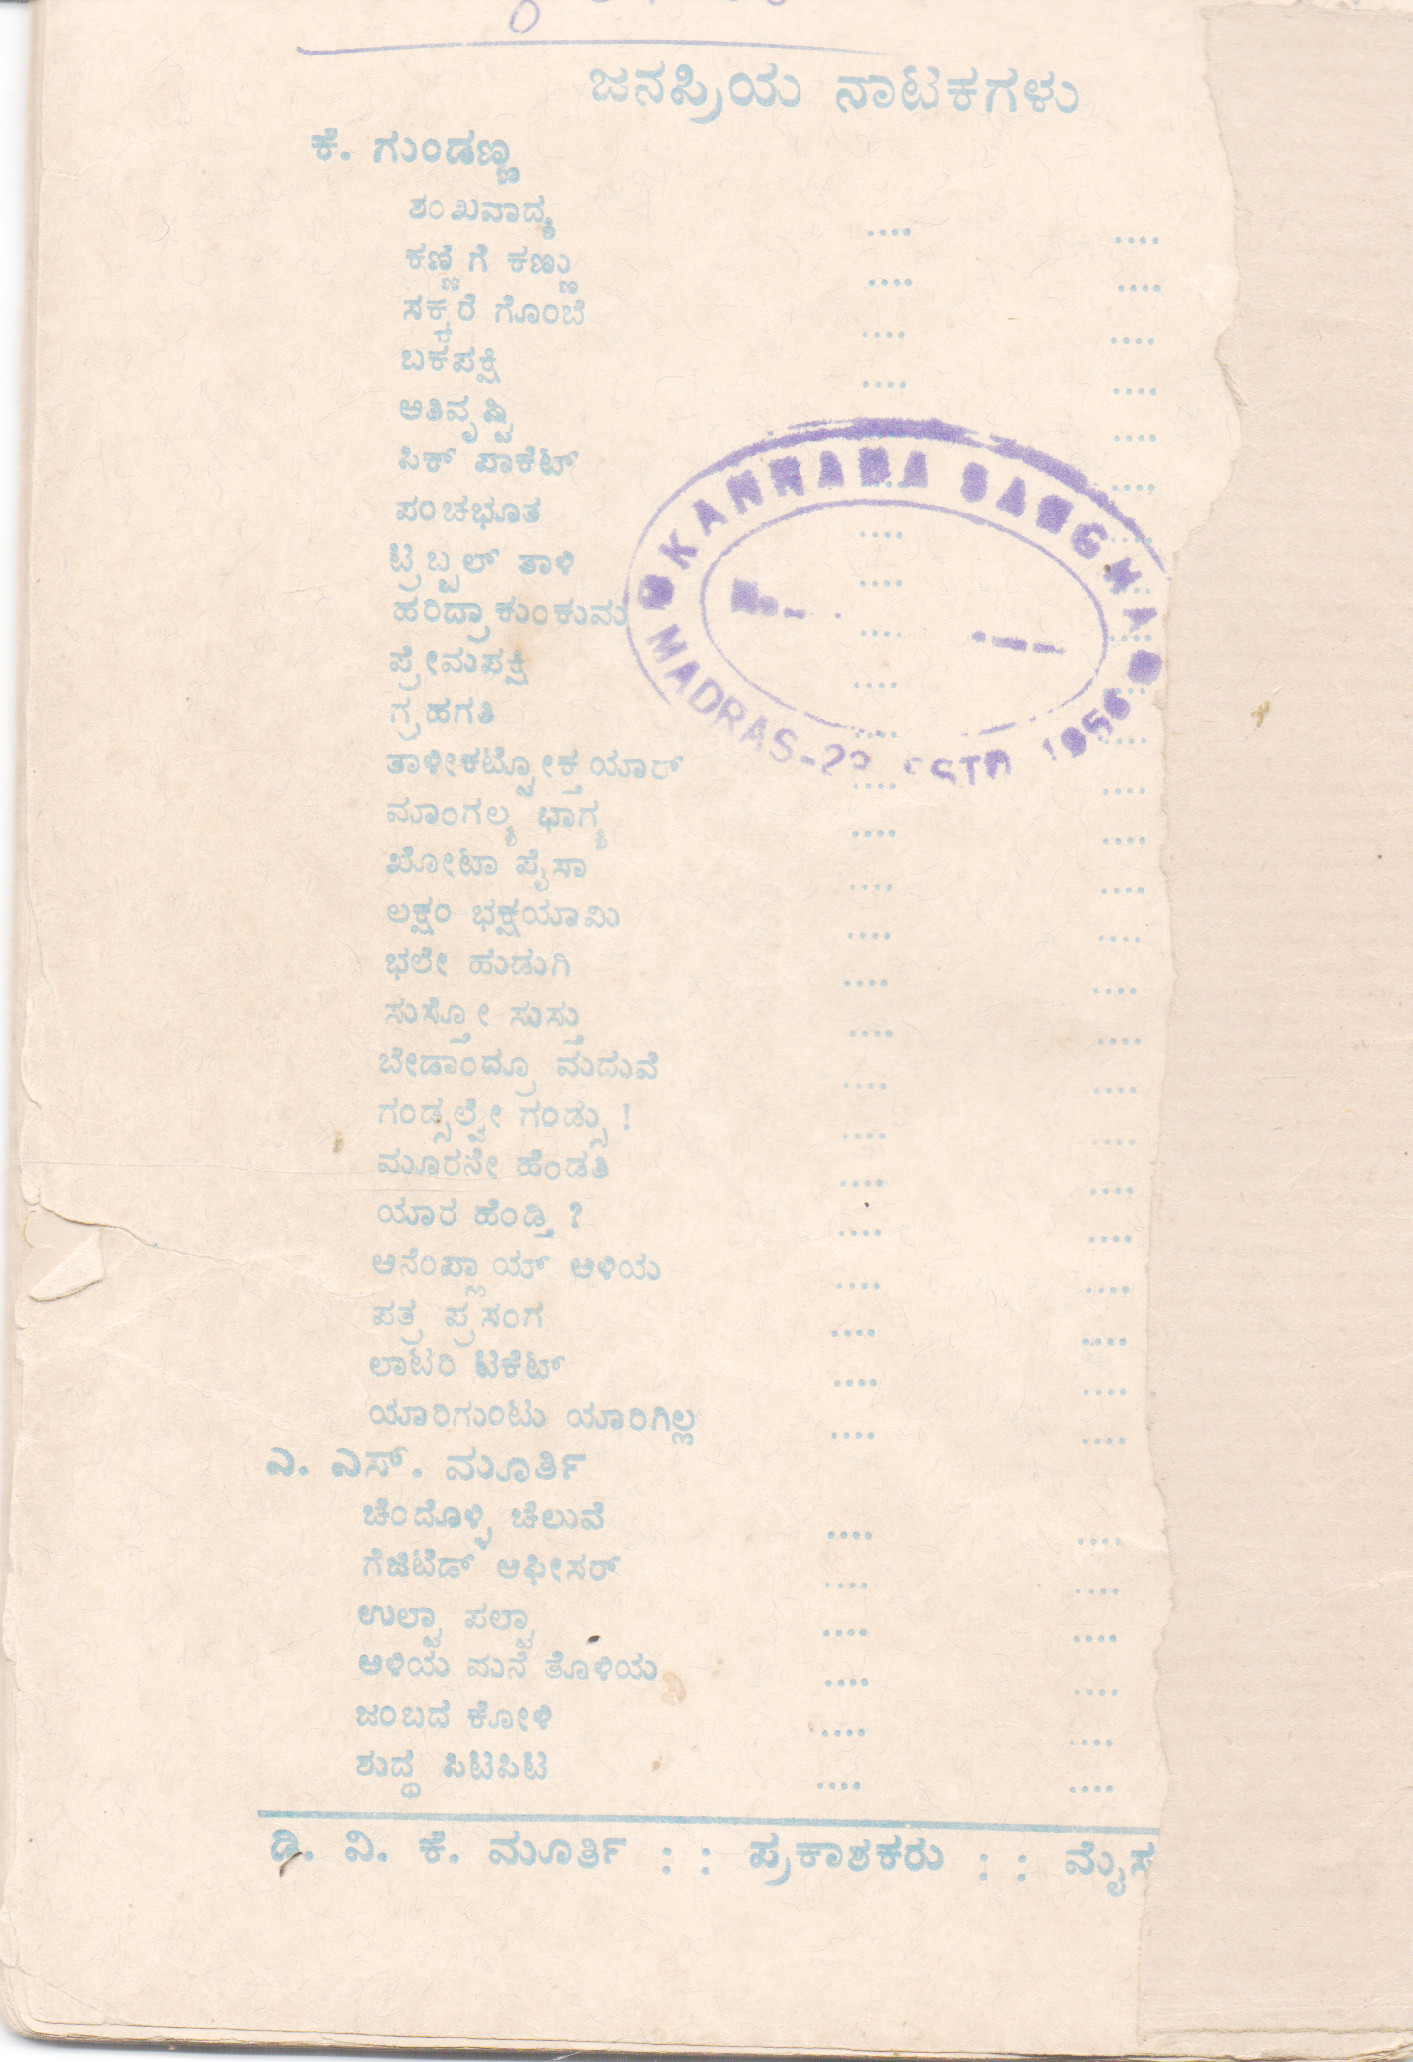 ಜನಪ್ರಿಯ ನಾಟಕಗಳು
ಕೆ. ಗುಂಡಣ್ಣ
ಶಂಖವಾದ್ಯ .... ....
ಕಣ್ಣಿಗೆ ಕಣ್ಣು .... ....
ಸಕ್ಕರೆ ಗೊಂಬೆ .... ....
ಬಕಪಕ್ಷಿ .... ....
ಅತಿವೃಷ್ಟಿ ....
ಪಿಕ್ ಪಾಕೆಟ್ .... ....
ಪಂಚಭೂತ .... ....
ಟ್ರಬ್ಬಲ್ ತಾಳಿ .... ....
ಹರಿದ್ರಾಕುಂಕುಮ .... ....
ಪ್ರೇಮಪಕ್ಷಿ .... ....
ಗ್ರಹಗತಿ .... ....
ತಾಳೀಕಟ್ಟೋಕ್ತಯಾರ್ .... ....
ಮಾಂಗಲ್ಯ ಭಾಗ್ಯ .... ....
ಖೋಟಾ ಪೈಸಾ .... ....
ಲಕ್ಷಂ ಭಕ್ಷಯಾಮಿ .... ....
ಭಲೇ ಹುಡುಗಿ .... ....
ಸುಸ್ತೋ ಸುಸ್ತು .... ....
ಬೇಡಾಂದ್ರೂ ಮದುವೆ .... ....
ಗಂಡ್ಸಲ್ವೇ ಗಂಡ್ಸು ! .... ....
ಮೂರನೇ ಹೆಂಡತಿ .... ....
ಯಾರ ಹೆಂಡ್ತಿ ? .... ....
ಅನೆಂಪ್ಲಾಯ್ ಅಳಿಯ .... ....
ಪತ್ರ ಪ್ರಸಂಗ .... ....
ಲಾಟರಿ ಟಿಕೆಟ್ .... ....
ಯಾರಿಗುಂಟು ಯಾರಿಗಿಲ್ಲ .... ....
ಎ. ಎಸ್. ಮೂರ್ತಿ
ಚೆಂದೊಳ್ಳಿ ಚೆಲುವೆ .... ....
ಗೆಜಿಟೆಡ್ ಆಫೀಸರ್ .... ....
ಉಲ್ಟಾ ಪಲ್ಟಾ .... ....
ಅಳಿಯ ಮನೆ ತೊಳಿಯ .... ....
ಜಂಬದ ಕೋಳಿ .... ....
ಶುದ್ಧ ಪಿಟಪಿಟ .... ....
ಡಿ. ವಿ. ಕೆ. ಮೂರ್ತಿ : : ಪ್ರಕಾಶಕರು : : ಮೈಸ
KANNADA SANGHA
No.
MADRAS-22 ESTD 1956